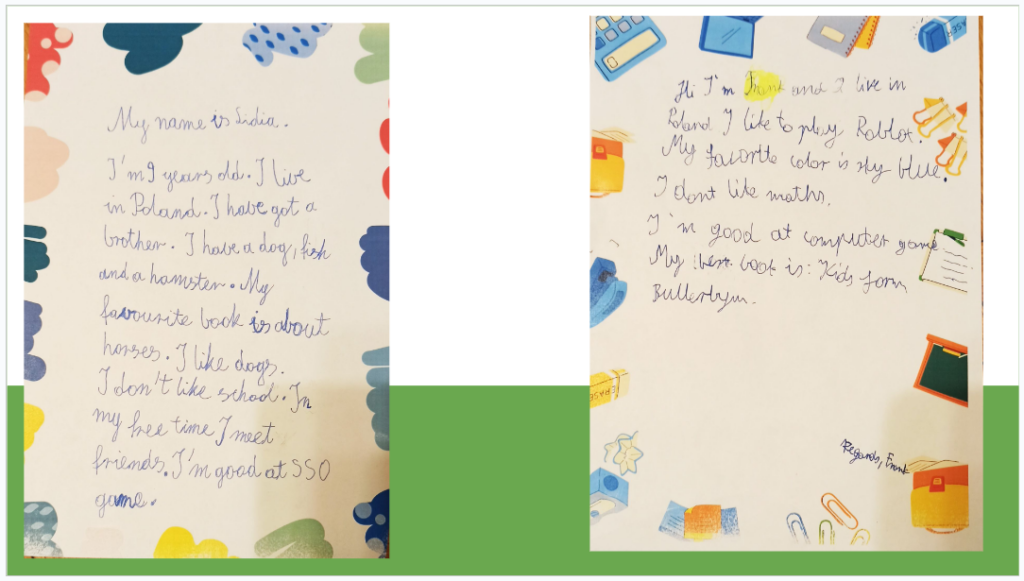 My name is Lidia.
I'm 9 years old. I live
in Poland. I have got a
brother. I have a dog, fish
and a hamster. My
favourite book is about
horses. I like dogs.
I don't like school. In
my free time I meet
friends. I'm good at SSO
game.
Hi I'm Frank and I live in
Poland I like to play Roblox.
My favorite color is sky blue.
I dont like maths.
I'm good at computer game
My best book is: Kids form
Bullerbym.
Regards, Frank
ERASE